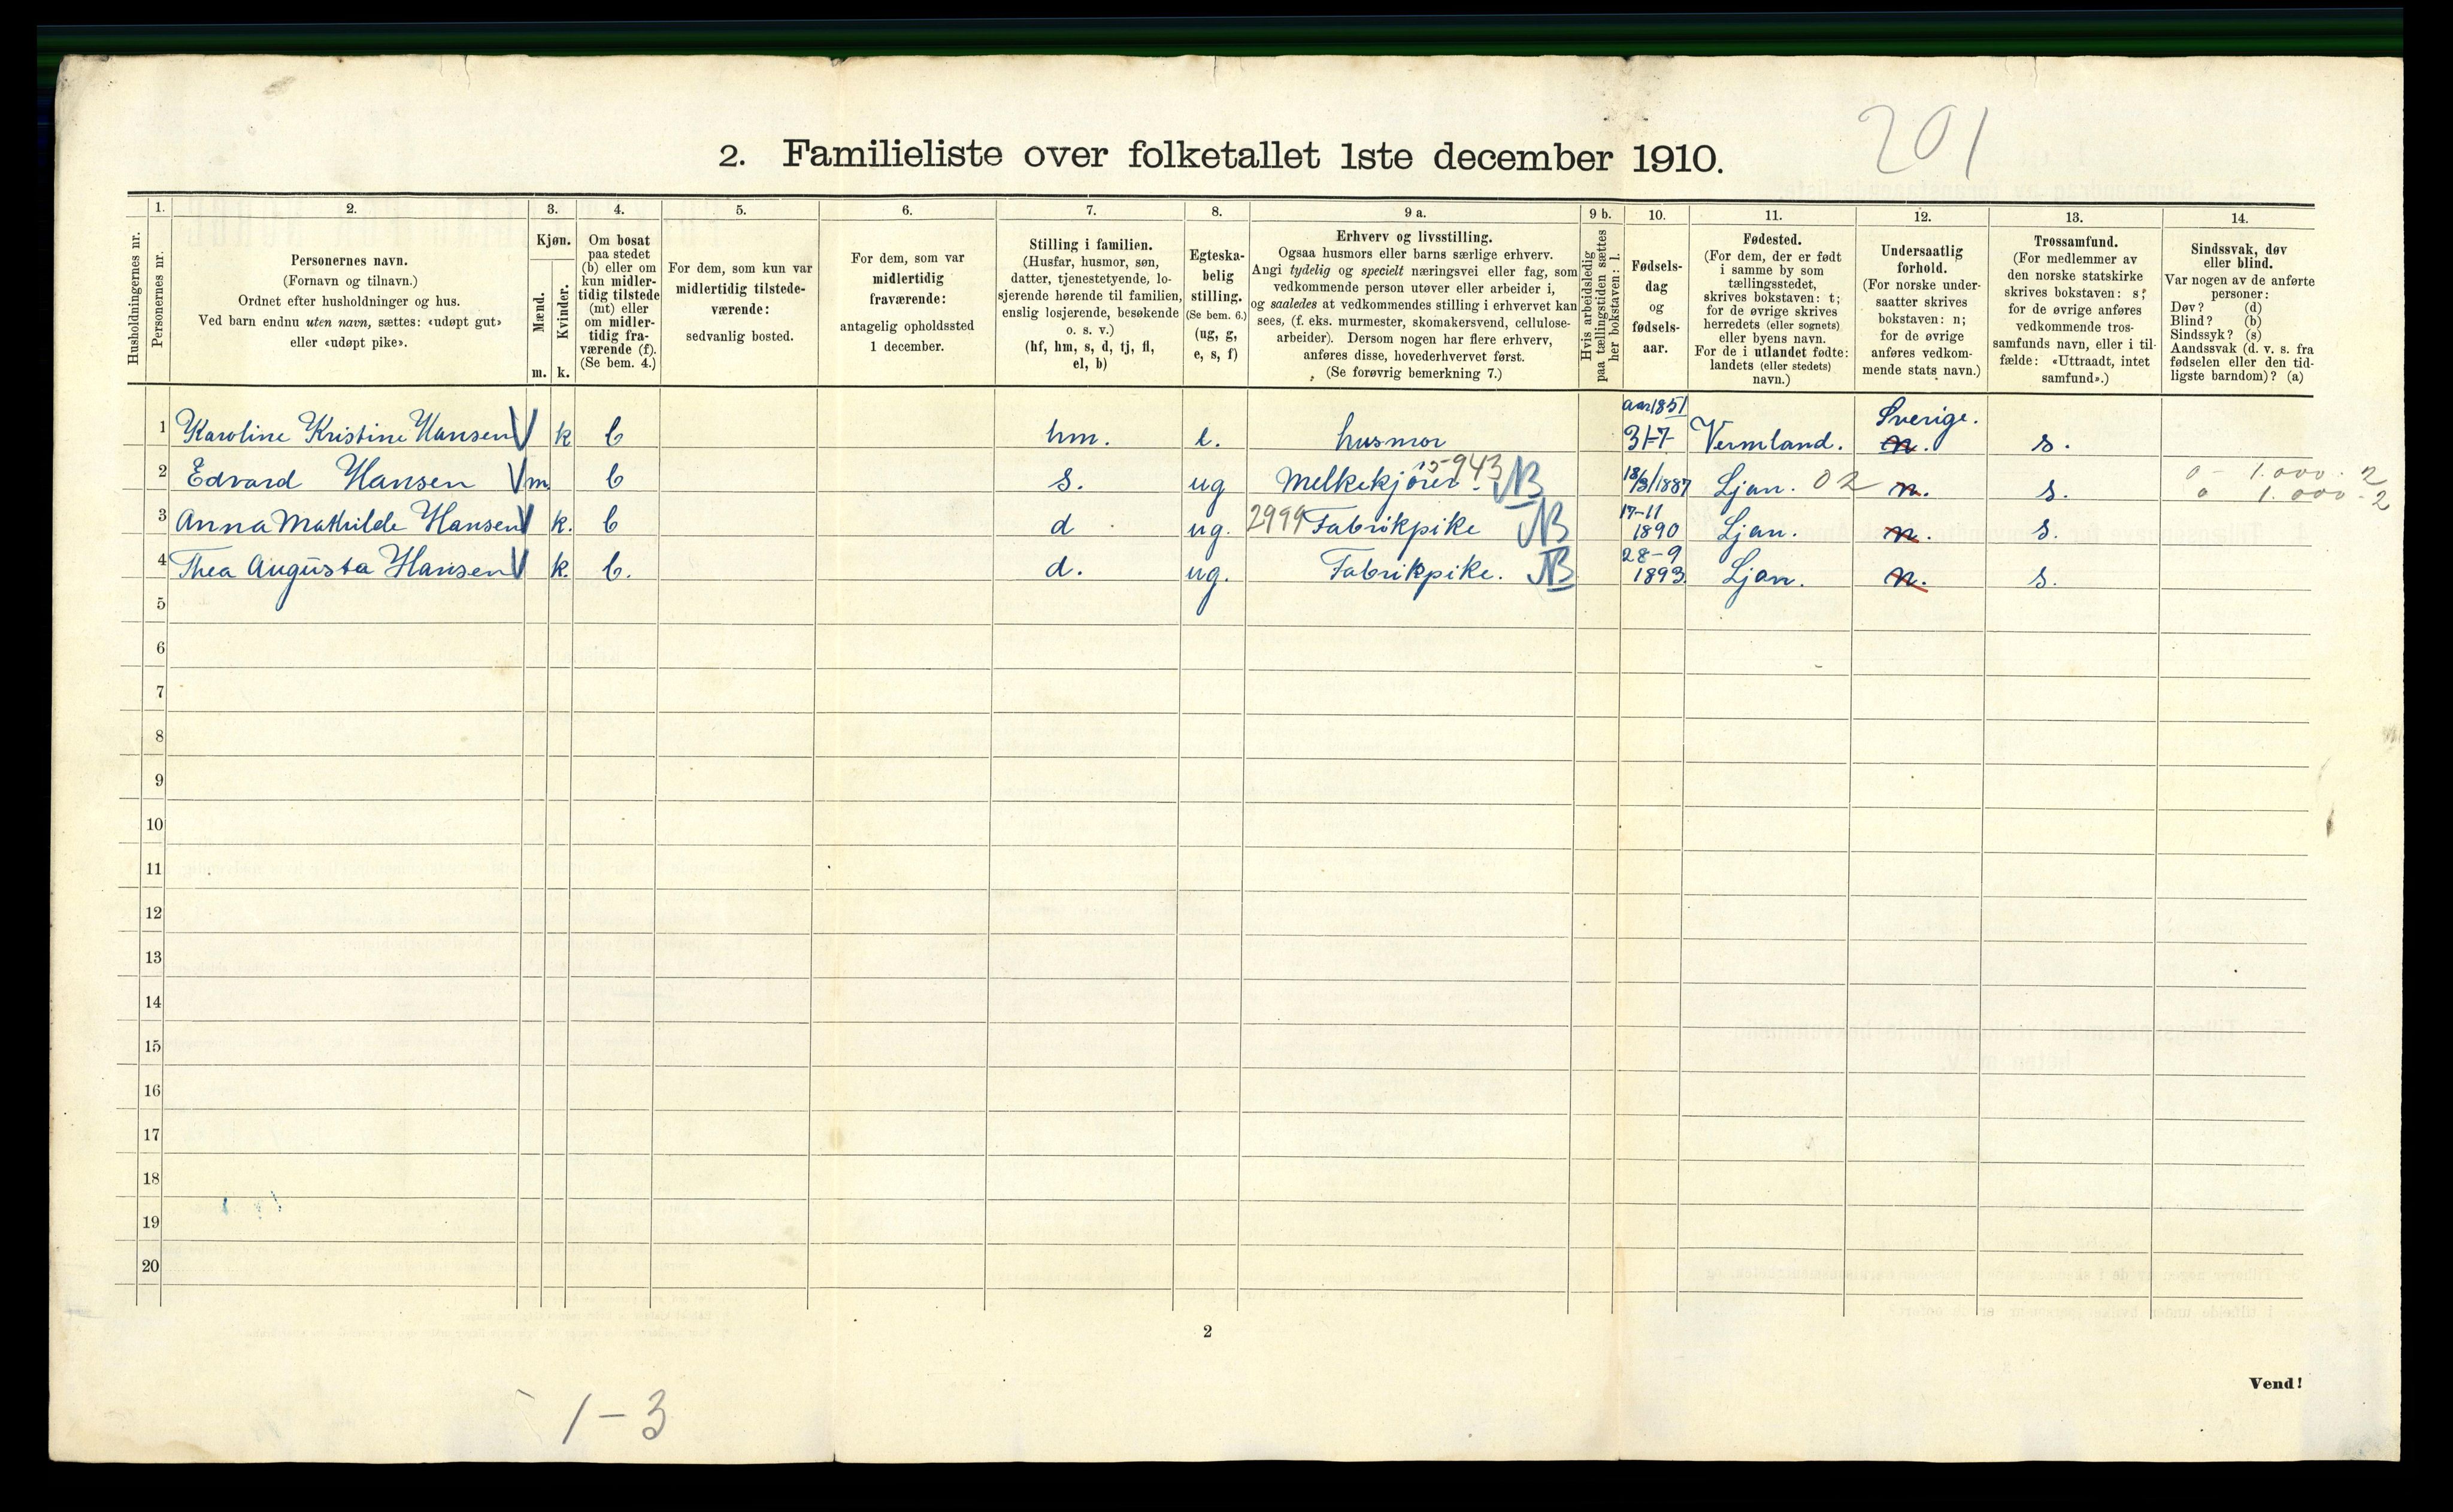 201
2. Familieliste over folketallet 1ste december 1910.
Husholdningernes nr.
1.
Personernes nr.
2.
Personernes navn.
(Fornavn og tilnavn.)
Ordnet efter husholdninger og hus.
Ved barn endnu uten navn, sættes: «udøpt gut»
eller «udøpt pike».
3.
Kjøn.
Mænd.
Kvinder.
m. k.
4.
Om bosat
paa stedet
(b) eller om
kun midler-
tidig tilstede
(mt) eller
om midler-
tidig fra-
værende (f).
(Se bem. 4.)
5.
For dem, som kun var
midlertidig tilstede-
værende:
sedvanlig bosted.
6.
For dem, som var
midlertidig
fraværende:
antagelig opholdssted
1 december.
7.
Stilling i familien.
(Husfar, husmor, søn,
datter, tjenestetyende, lo-
sjerende hørende til familien,
enslig losjerende, besøkende
o. s. v.)
(hf, hm, s, d, tj, fl,
el, b)
8.
Egteska-
belig
stilling.
(Se bem. 6.)
(ug, g,
e, s, f)
9 a.
Erhverv og livsstilling.
Ogsaa husmors eller barns særlige erhverv.
Angi tydelig og specielt næringsvei eller fag, som
vedkommende person utøver eller arbeider i,
og saaledes at vedkommendes stilling i erhvervet kan
sees, (f. eks. murmester, skomakersvend, cellulose-
arbeider). Dersom nogen har flere erhverv,
anføres disse, hovederhvervet først.
(Se forøvrig bemerkning 7.)
9 b.
Hvis arbeidsledig
paa tællingstiden sættes
her bokstaven: l.
10.
Fødsels-
dag
og
fødsels-
aar.
11.
Fødested.
(For dem, der er født
i samme by som
tællingsstedet,
skrives bokstaven: t;
for de øvrige skrives
herredets (eller sognets)
eller byens navn.
For de i utlandet fødte:
landets (eller stedets)
navn.)
12.
Undersaatlig
forhold.
(For norske under-
saatter skrives
bokstaven: n;
for de øvrige
anføres vedkom-
mende stats navn.)
13.
Trossamfund.
(For medlemmer av
den norske statskirke
skrives bokstaven: s;
for de øvrige anføres
vedkommende tros-
samfunds navn, eller i til-
fælde: «Uttraadt, intet
samfund».)
14.
Sindssvak, døv
eller blind.
Var nogen av de anførte
personer:
Døv? (d)
Blind? (b)
Sindssyk? (s)
Aandssvak (d. v. s. fra
fødselen eller den tid-
ligste barndom)? (a)
1 Karoline Kristine Hansen k b hm. e. husmor aar 1851 31-7 Vermland. Sverige. n. s.
2 Edvard Hansen m b s. ug Melkekjører. 15-943 NB 18/3/1887 Ljan. 02 n. s. 0 - 1.000. 2
0 1.000 - 2
3 Anna Mathilde Hansen k. b d ug. 2999 Fabrikpike NB 17-11 1890 Ljan. n. s.
4 Thea Augusta Hansen k. b. d. ug. Fabrikpike. NB 28-9 1893 Ljan. n. s.
5
6
7
8
9
10
11
12
13
14
15
16
17
18
19
20
2
Vend!
1-3